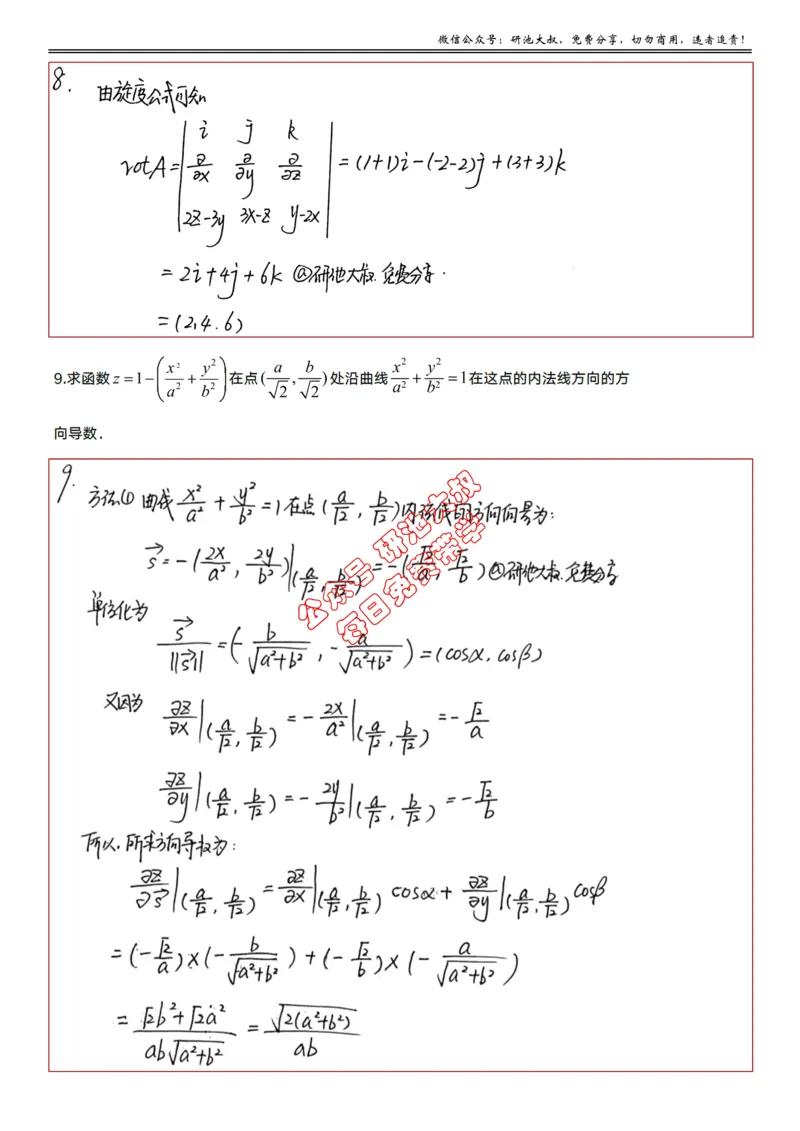 微信公众号：研池大叔，免费分享，切勿商用，违者追责！
8. 由旋度公式可知
rotA = | i j k |
| ∂/∂x ∂/∂y ∂/∂z | = (1+1)i-(-2-2)j+(3+3)k
| 2z-3y 3x-z y-2x |
= 2i+4j+6k @研池大叔.免费分享.
= (2,4.6)
9.求函数 z=1-(x²/a²+y²/b²) 在点(a/√2, b/√2)处沿曲线 x²/a²+y²/b²=1在这点的内法线方向的方
向导数.
9. 方法① 曲线 x²/a²+y²/b²=1在点(a/√2, b/√2)内法线的方向向量为:
s⃗=-(2x/a², 2y/b²)|(a/√2, b/√2) = -(√2/a, √2/b) @研池大叔.免费分享
公众号 研池大叔
每日免费带学
单位化为
s⃗/||s⃗|| = (-b/√(a²+b²), -a/√(a²+b²)) = (cosα, cosβ)
又因为 ∂z/∂x|(a/√2, b/√2) = -2x/a²|(a/√2, b/√2) = -√2/a
∂z/∂y|(a/√2, b/√2) = -2y/b²|(a/√2, b/√2) = -√2/b
所以,所求方向导数为:
∂z/∂s⃗|(a/√2, b/√2) = ∂z/∂x|(a/√2, b/√2) cosα + ∂z/∂y|(a/√2, b/√2) cosβ
= (-√2/a)×(-b/√(a²+b²)) + (-√2/b)×(-a/√(a²+b²))
= (√2b²+√2a²)/(ab√(a²+b²)) = √(2(a²+b²))/(ab)